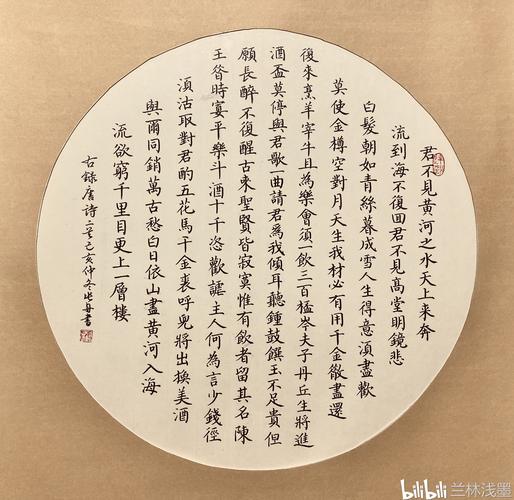 君不見黃河之水天上来奔
流到海不復回君不見高堂明鏡悲
白髮朝如青絲暮成雪人生得意須盡歡
莫使金樽空對月天生我材必有用千金散盡還
復来烹羊宰牛且為樂會須一飲三百盃岑夫子丹丘生將進
酒盃莫停與君歌一曲請君為我傾耳聽鍾鼓饌玉不足貴但
願長醉不復醒古来聖賢皆寂寞惟有飲者留其名陳
王昔時宴平樂斗酒十千恣歡謔主人何為言少錢徑
須沽取對君酌五花馬千金裘呼兒將出換美酒
與爾同銷萬古愁白日依山盡黃河入海
流欲窮千里目更上一層樓
右錄唐詩二首己亥仲冬書
bilibili 兰林浅墨